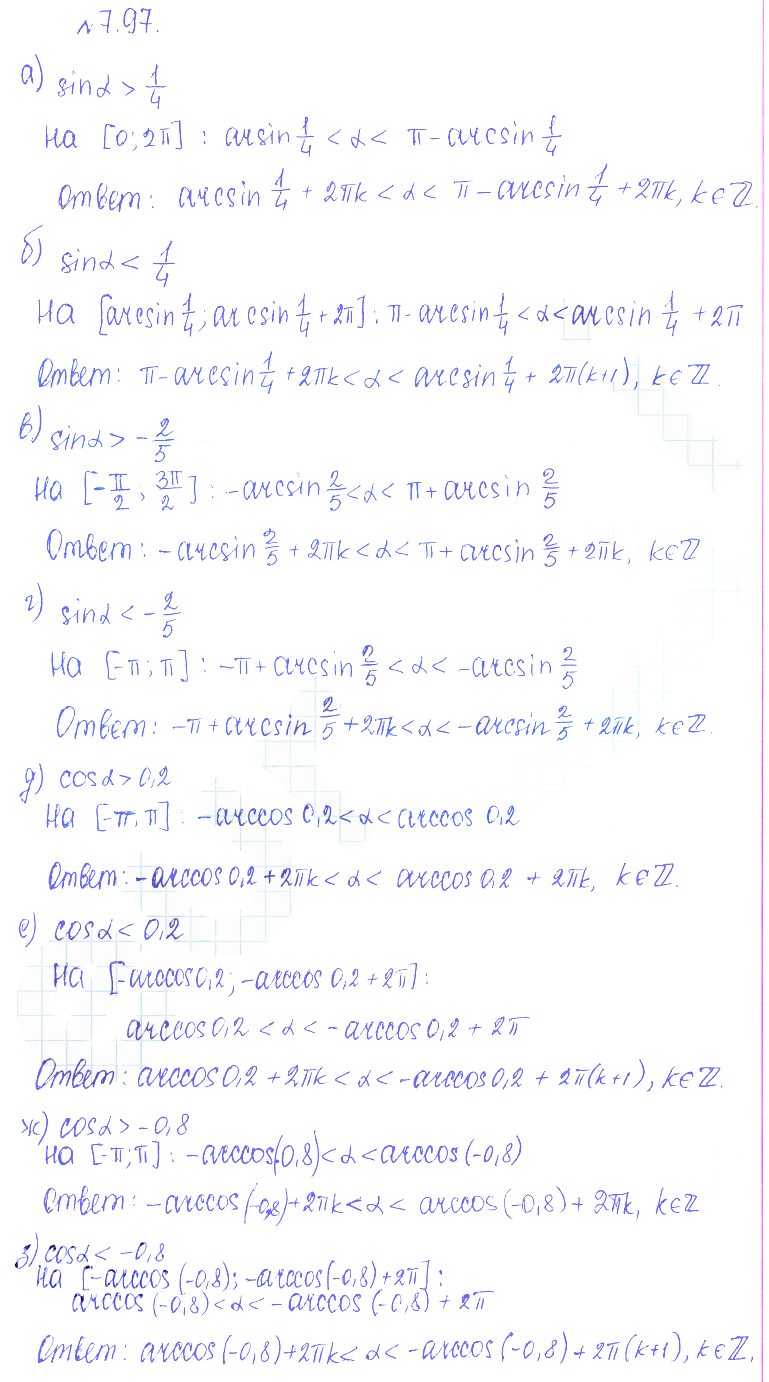 №7.97.
а) sinα > 1/4
на [0; 2π] : arsin 1/4 < α < π - arcsin 1/4
Ответ: arcsin 1/4 + 2πk < α < π - arcsin 1/4 + 2πk, k∈ℤ.
б) sinα < 1/4
На [arcsin 1/4; arcsin 1/4 + 2π] : π - arcsin 1/4 < α < arcsin 1/4 + 2π
Ответ: π - arcsin 1/4 + 2πk < α < arcsin 1/4 + 2π(k+1), k∈ℤ.
в) sinα > - 2/5
На [-π/2; 3π/2] : -arcsin 2/5 < α < π + arcsin 2/5
Ответ: -arcsin 2/5 + 2πk < α < π + arcsin 2/5 + 2πk, k∈ℤ
г) sinα < - 2/5
На [-π; π] : -π + arcsin 2/5 < α < -arcsin 2/5
Ответ: -π + arcsin 2/5 + 2πk < α < -arcsin 2/5 + 2πk, k∈ℤ.
д) cosα > 0,2
На [-π, π] : -arccos 0,2 < α < arccos 0,2
Ответ: -arccos 0,2 + 2πk < α < arccos 0,2 + 2πk, k∈ℤ.
е) cosα < 0,2
На [-arccos 0,2; -arccos 0,2 + 2π] :
arccos 0,2 < α < -arccos 0,2 + 2π
Ответ: arccos 0,2 + 2πk < α < -arccos 0,2 + 2π(k+1), k∈ℤ.
ж) cosα > -0,8
на [-π; π] : -arccos(-0,8) < α < arccos(-0,8)
Ответ: -arccos(-0,8) + 2πk < α < arccos(-0,8) + 2πk, k∈ℤ
з) cosα < -0,8
на [-arccos(-0,8); -arccos(-0,8) + 2π] :
arccos(-0,8) < α < -arccos(-0,8) + 2π
Ответ: arccos(-0,8) + 2πk < α < -arccos(-0,8) + 2π(k+1), k∈ℤ.